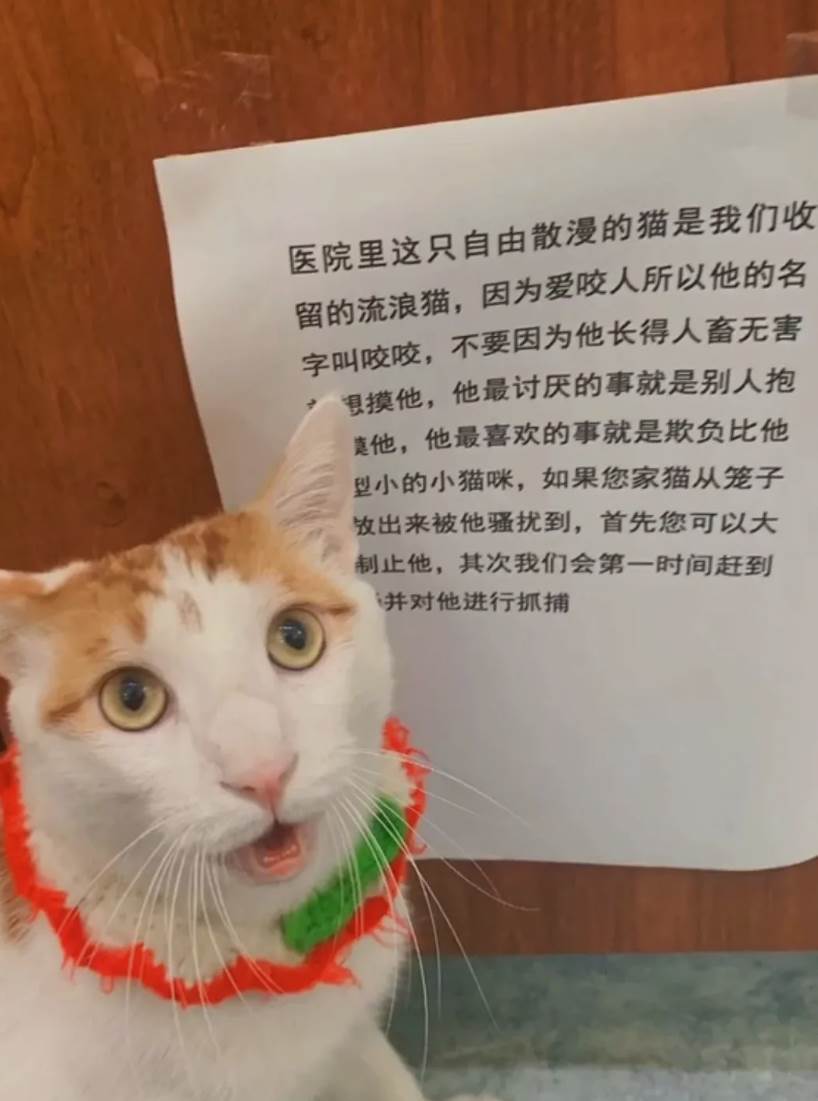 医院里这只自由散漫的猫是我们收
留的流浪猫，因为爱咬人所以他的名
字叫咬咬，不要因为他长得人畜无害
想摸他，他最讨厌的事就是别人抱
摸他，他最喜欢的事就是欺负比他
型小的小猫咪，如果您家猫从笼子
放出来被他骚扰到，首先您可以大
制止他，其次我们会第一时间赶到
并对他进行抓捕